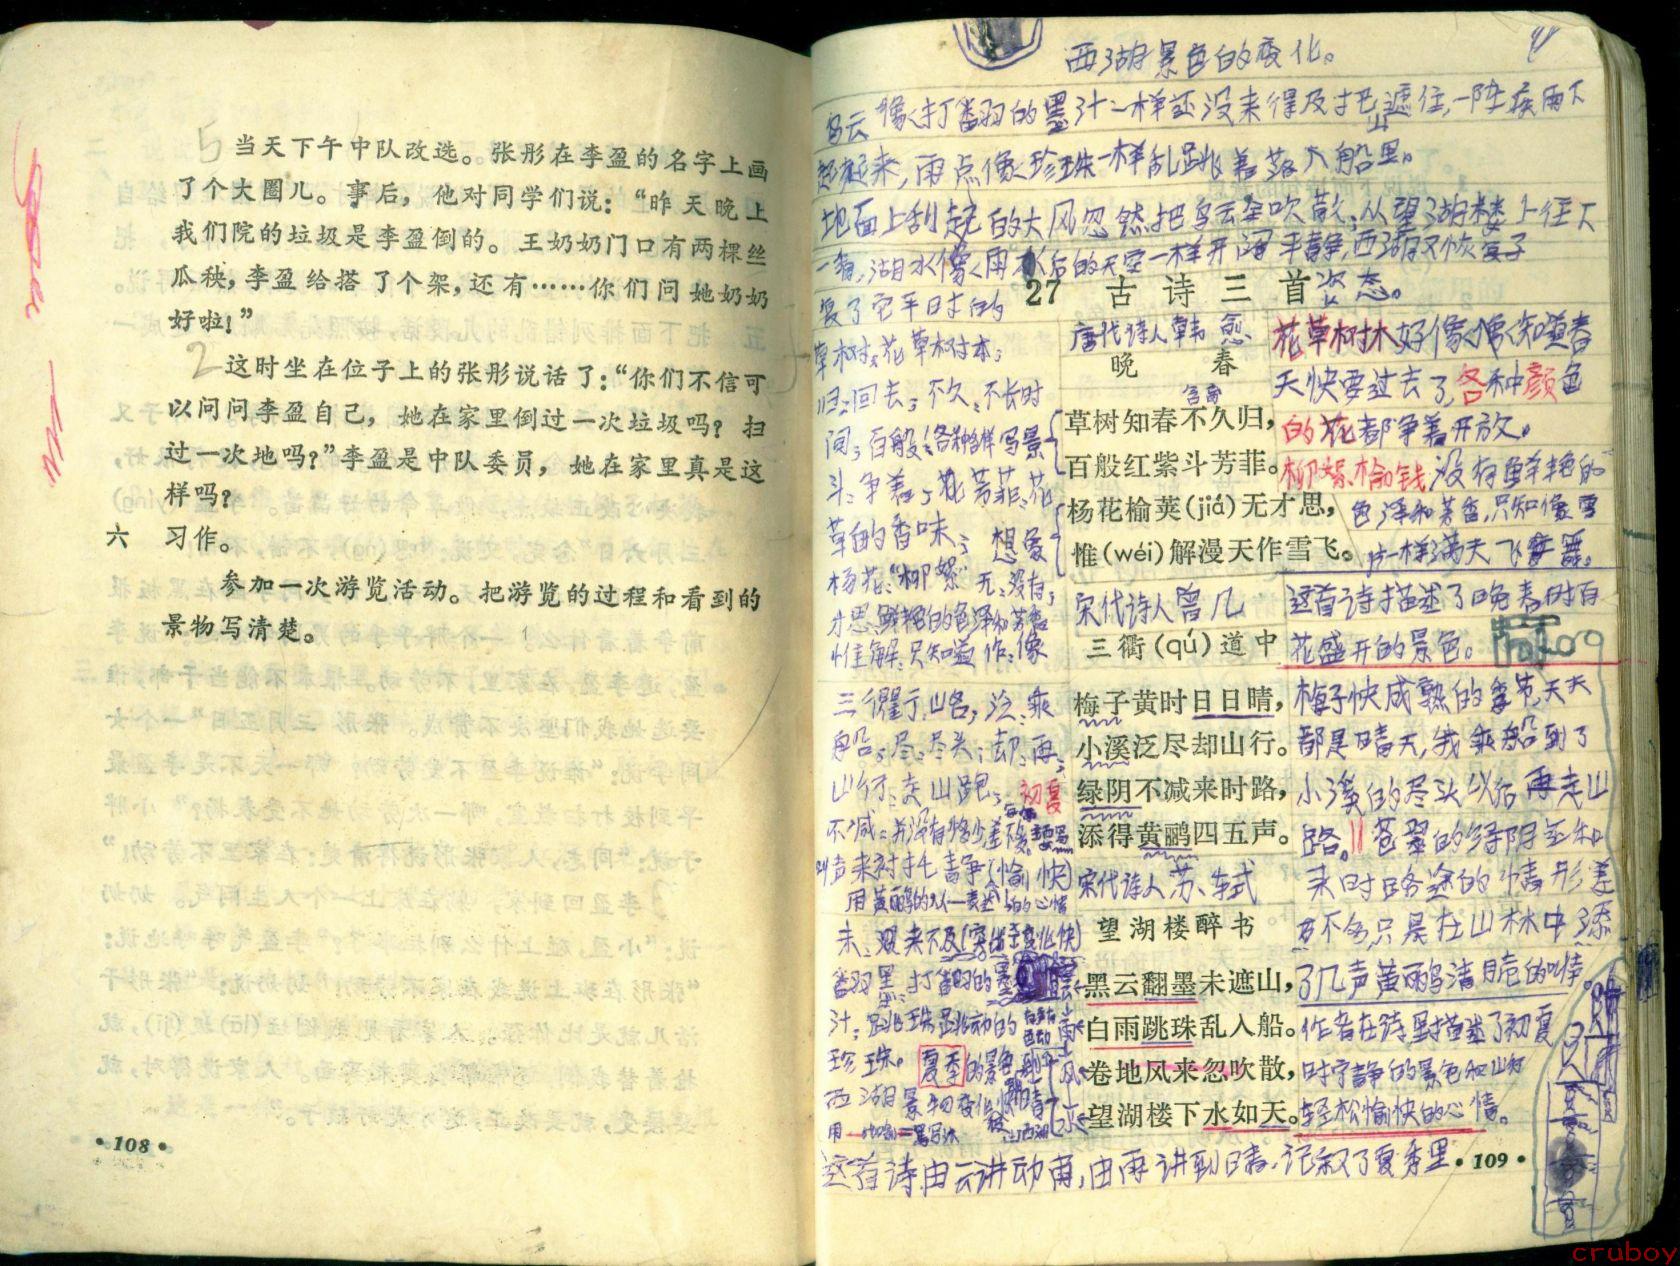 5 当天下午中队改选。张彤在李盈的名字上画
了个大圈儿。事后，他对同学们说：“昨天晚上
我们院的垃圾是李盈倒的。王奶奶门口有两棵丝
瓜秧，李盈给搭了个架，还有……你们问她奶奶
好啦！”
2 这时坐在位子上的张彤说话了：“你们不信可
以问问李盈自己，她在家里倒过一次垃圾吗？扫
过一次地吗？”李盈是中队委员，她在家里真是这
样吗？
六 习作。
参加一次游览活动。把游览的过程和看到的
景物写清楚。
·108·
西湖景色的变化。
乌云像打翻的墨汁一样还没来得及把山遮住，一阵疾雨下
起来，雨点像珍珠一样乱跳着落入船里。
地面上刮起的大风忽然把乌云全吹散，从望湖楼上往下
一看，湖水像雨后的天空一样开阔平静，西湖又恢复了
27 古诗三首
姿态。
复了它平日的
草树：花草树木；
归：回去；不久：不长时
间；百般：各种各样 写景
斗：争着；芳菲：花
草的香味； 想象
杨花：“柳絮”无：没有；
才思：鲜艳的色泽和芳香
惟解：只知道 作：像
唐代诗人韩愈
晚春
草树知春不久归，
百般红紫斗芳菲。
杨花榆荚(jiá)无才思，
惟(wéi)解漫天作雪飞。
花草树木好像知道春
天快要过去了，各种颜色
的花都争着开放。
柳絮、榆钱没有鲜艳的
色泽和芳香，只知像雪
片一样满天飞舞。
这首诗描述了晚春时百
花盛开的景色。
三衢：山名；泛：乘
船；尽：尽头；却：再；
山行：走山路； 初夏
宋代诗人曾几
三衢(qú)道中
梅子黄时日日晴，
小溪泛尽却山行。
绿阴不减来时路，
添得黄鹂四五声。
梅子快成熟的季节，天天
都是晴天，我乘船到了
小溪的尽头以后再走山
路。苍翠的绿阴和
来时路途的情形差
不多只是在山林中添
了几声黄鹂清脆的叫声。
作者在诗里描述了初夏
时宁静的景色和山行
轻松愉快的心情。
宋代诗人苏轼
望湖楼醉书
黑云翻墨未遮山，
白雨跳珠乱入船。
卷地风来忽吹散，
望湖楼下水如天。
翻墨：打翻的墨
汁；跳珠：跳动的
珍珠。 夏季的景色
西湖景物变化快
这首诗由云讲动雨，由雨讲到晴，记叙了夏季里
·109·
cruboy